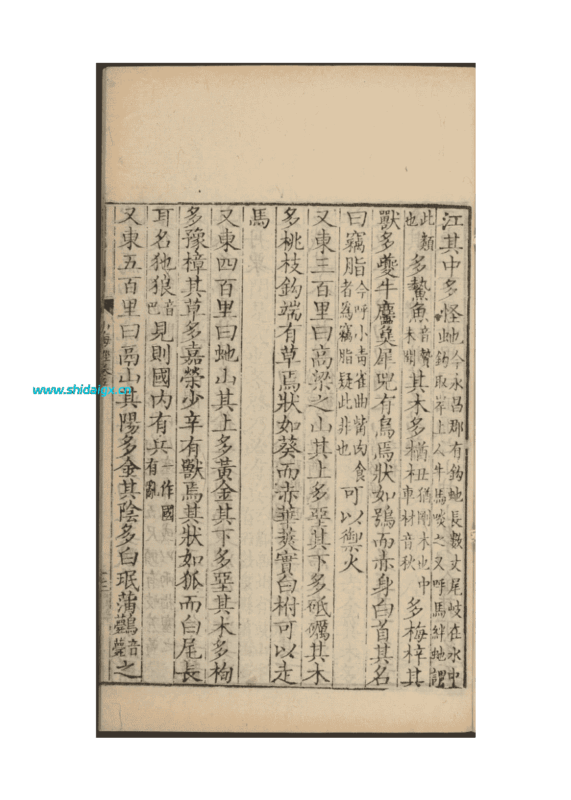 江其中多怪虵今永昌郡有鈎虵長數丈尾岐在水中鈎取岸上人牛馬啖之又呼馬絆虵謂
此類也多鷙魚音贄未聞其木多楢杻楢剛木也中車材音秋多梅梓其
獸多夔牛麢㚟犀兕有鳥焉狀如鴞而赤身白首其名
曰竊脂今呼小青雀曲觜肉食者為竊脂疑此非也可以禦火
又東三百里曰高梁之山其上多堊其下多砥礪其木
多桃枝鈎端有草焉狀如葵而赤華莢實白柎可以走
馬
又東四百里曰虵山其上多黃金其下多堊其木多栒
多豫樟其草多嘉榮少辛有獸焉其狀如狐而白尾長
耳名㹢狼音巴見則國內有兵一作國有亂
又東五百里曰鬲山其陽多金其陰多白珉蒲鸛音之
山海經卷
www.shidaigs.cn